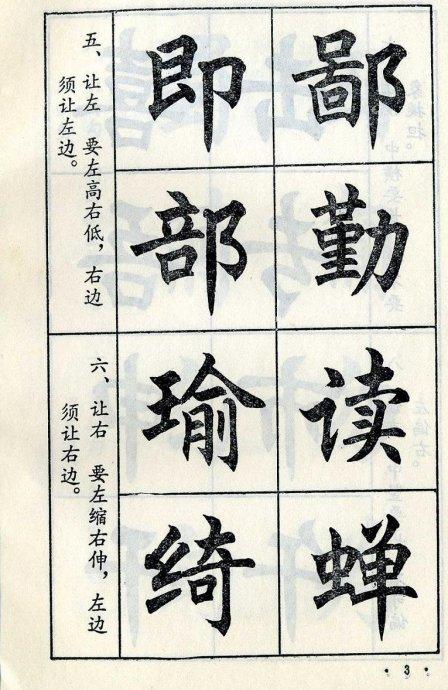 鄙勤读蝉
即部瑜绮
五、让左 要左高右低，右边
须让左边。
六、让右 要左缩右伸，左边
须让右边。
·3·